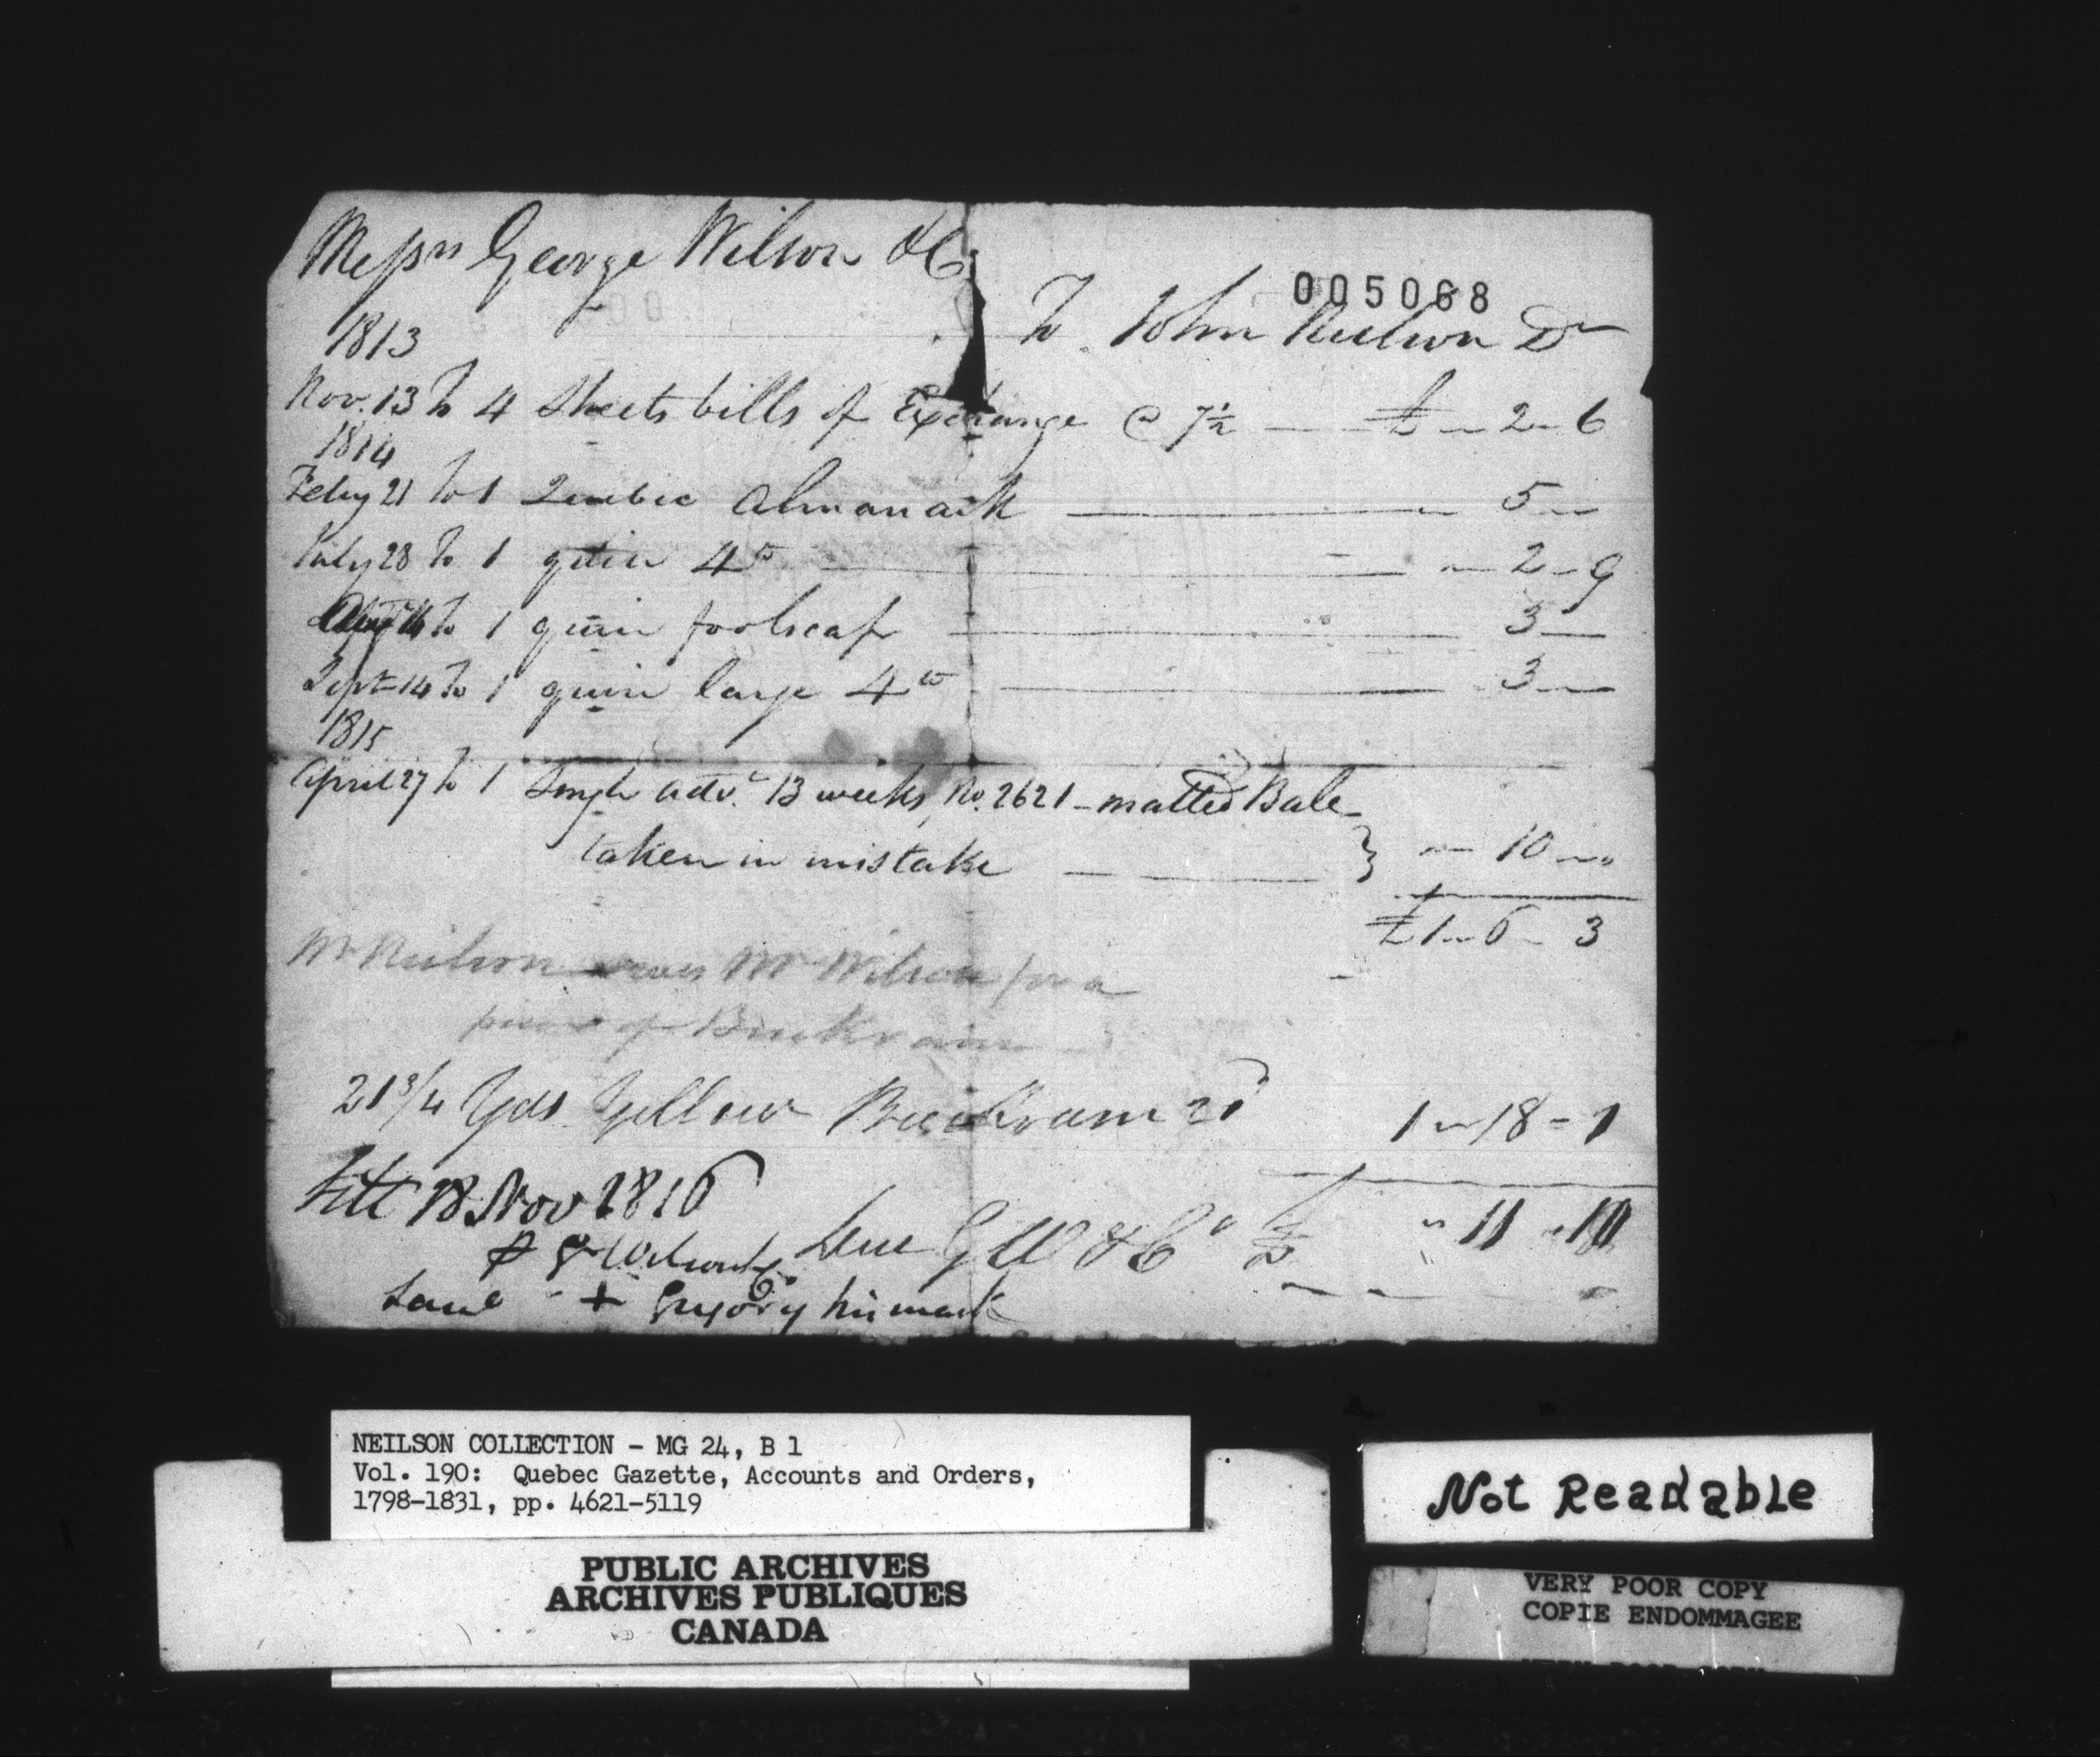 Messrs George Wilson & Co
005068
To John Neilson Dr
1813
Nov. 13 To 4 Sheets bills of Exchange @ 7½ — £ — 2 — 6
1814
Feby 21 To 1 Quebec Almanack — 5 —
July 28 To 1 quire 4to — 2 — 9
16 To 1 quire foolscap — 3 —
Sept 14 To 1 quire large 4to — 3 —
1815
April 27 To 1 Single advt 13 weeks, No. 2621 — matted Bale
taken in mistake — } — 10 —
£1 — 6 — 3
Mr Neilson owes Mr Wilson for a
piece of Buckram
21 3/4 Yds. Yellow Buckram 21d 1 — 18 — 1
18 Nov 1816
Due GW & Co £ " 11 " 10
+ Gregory his mark
NEILSON COLLECTION - MG 24, B 1
Vol. 190: Quebec Gazette, Accounts and Orders,
1798-1831, pp. 4621-5119
PUBLIC ARCHIVES
ARCHIVES PUBLIQUES
CANADA
Not Readable
VERY POOR COPY
COPIE ENDOMMAGEE